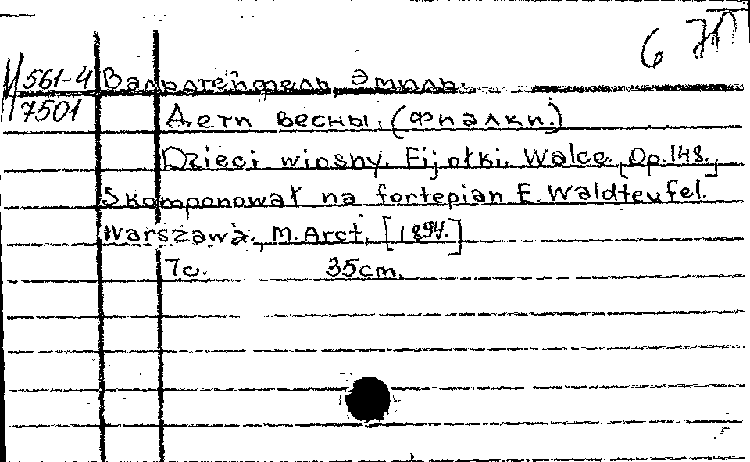 М 561-4 Вальдтейфель, Эмиль.
7501 Дети весны. (Фиалки.)
Dzieci wiosny. Fijołki. Walce. [Op. 148.]
Skomponował na fortepian E. Waldteufel.
Warszawa, M. Arct. [1894.]
7с. 35cm.